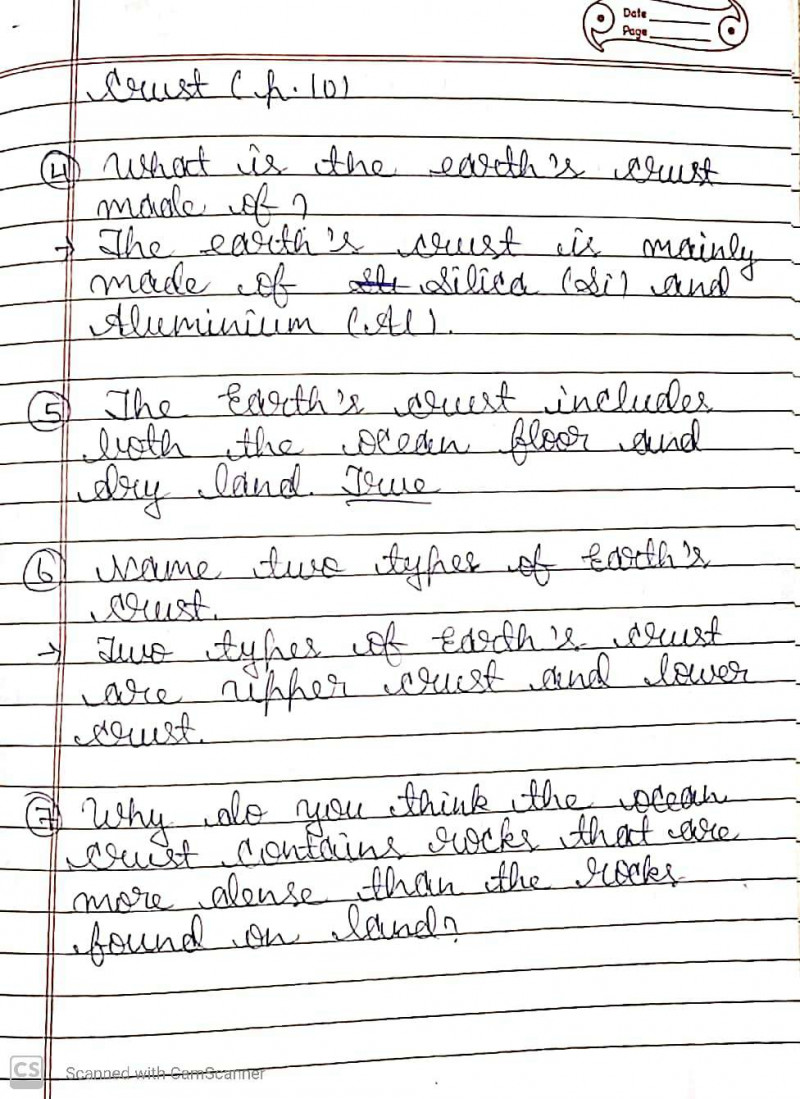 Date
Page
Crust (p.10)
4 What is the earth's crust
made of?
→ The earth's crust is mainly
made of Silica (Si) and
Aluminium (Al).
5 The Earth's crust includes
both the ocean floor and
dry land. True
6 Name two types of Earth's
crust.
→ Two types of Earth's crust
are upper crust and lower
crust.
7 Why do you think the ocean
crust contains rocks that are
more dense than the rocks
found on land?
CS Scanned with CamScanner